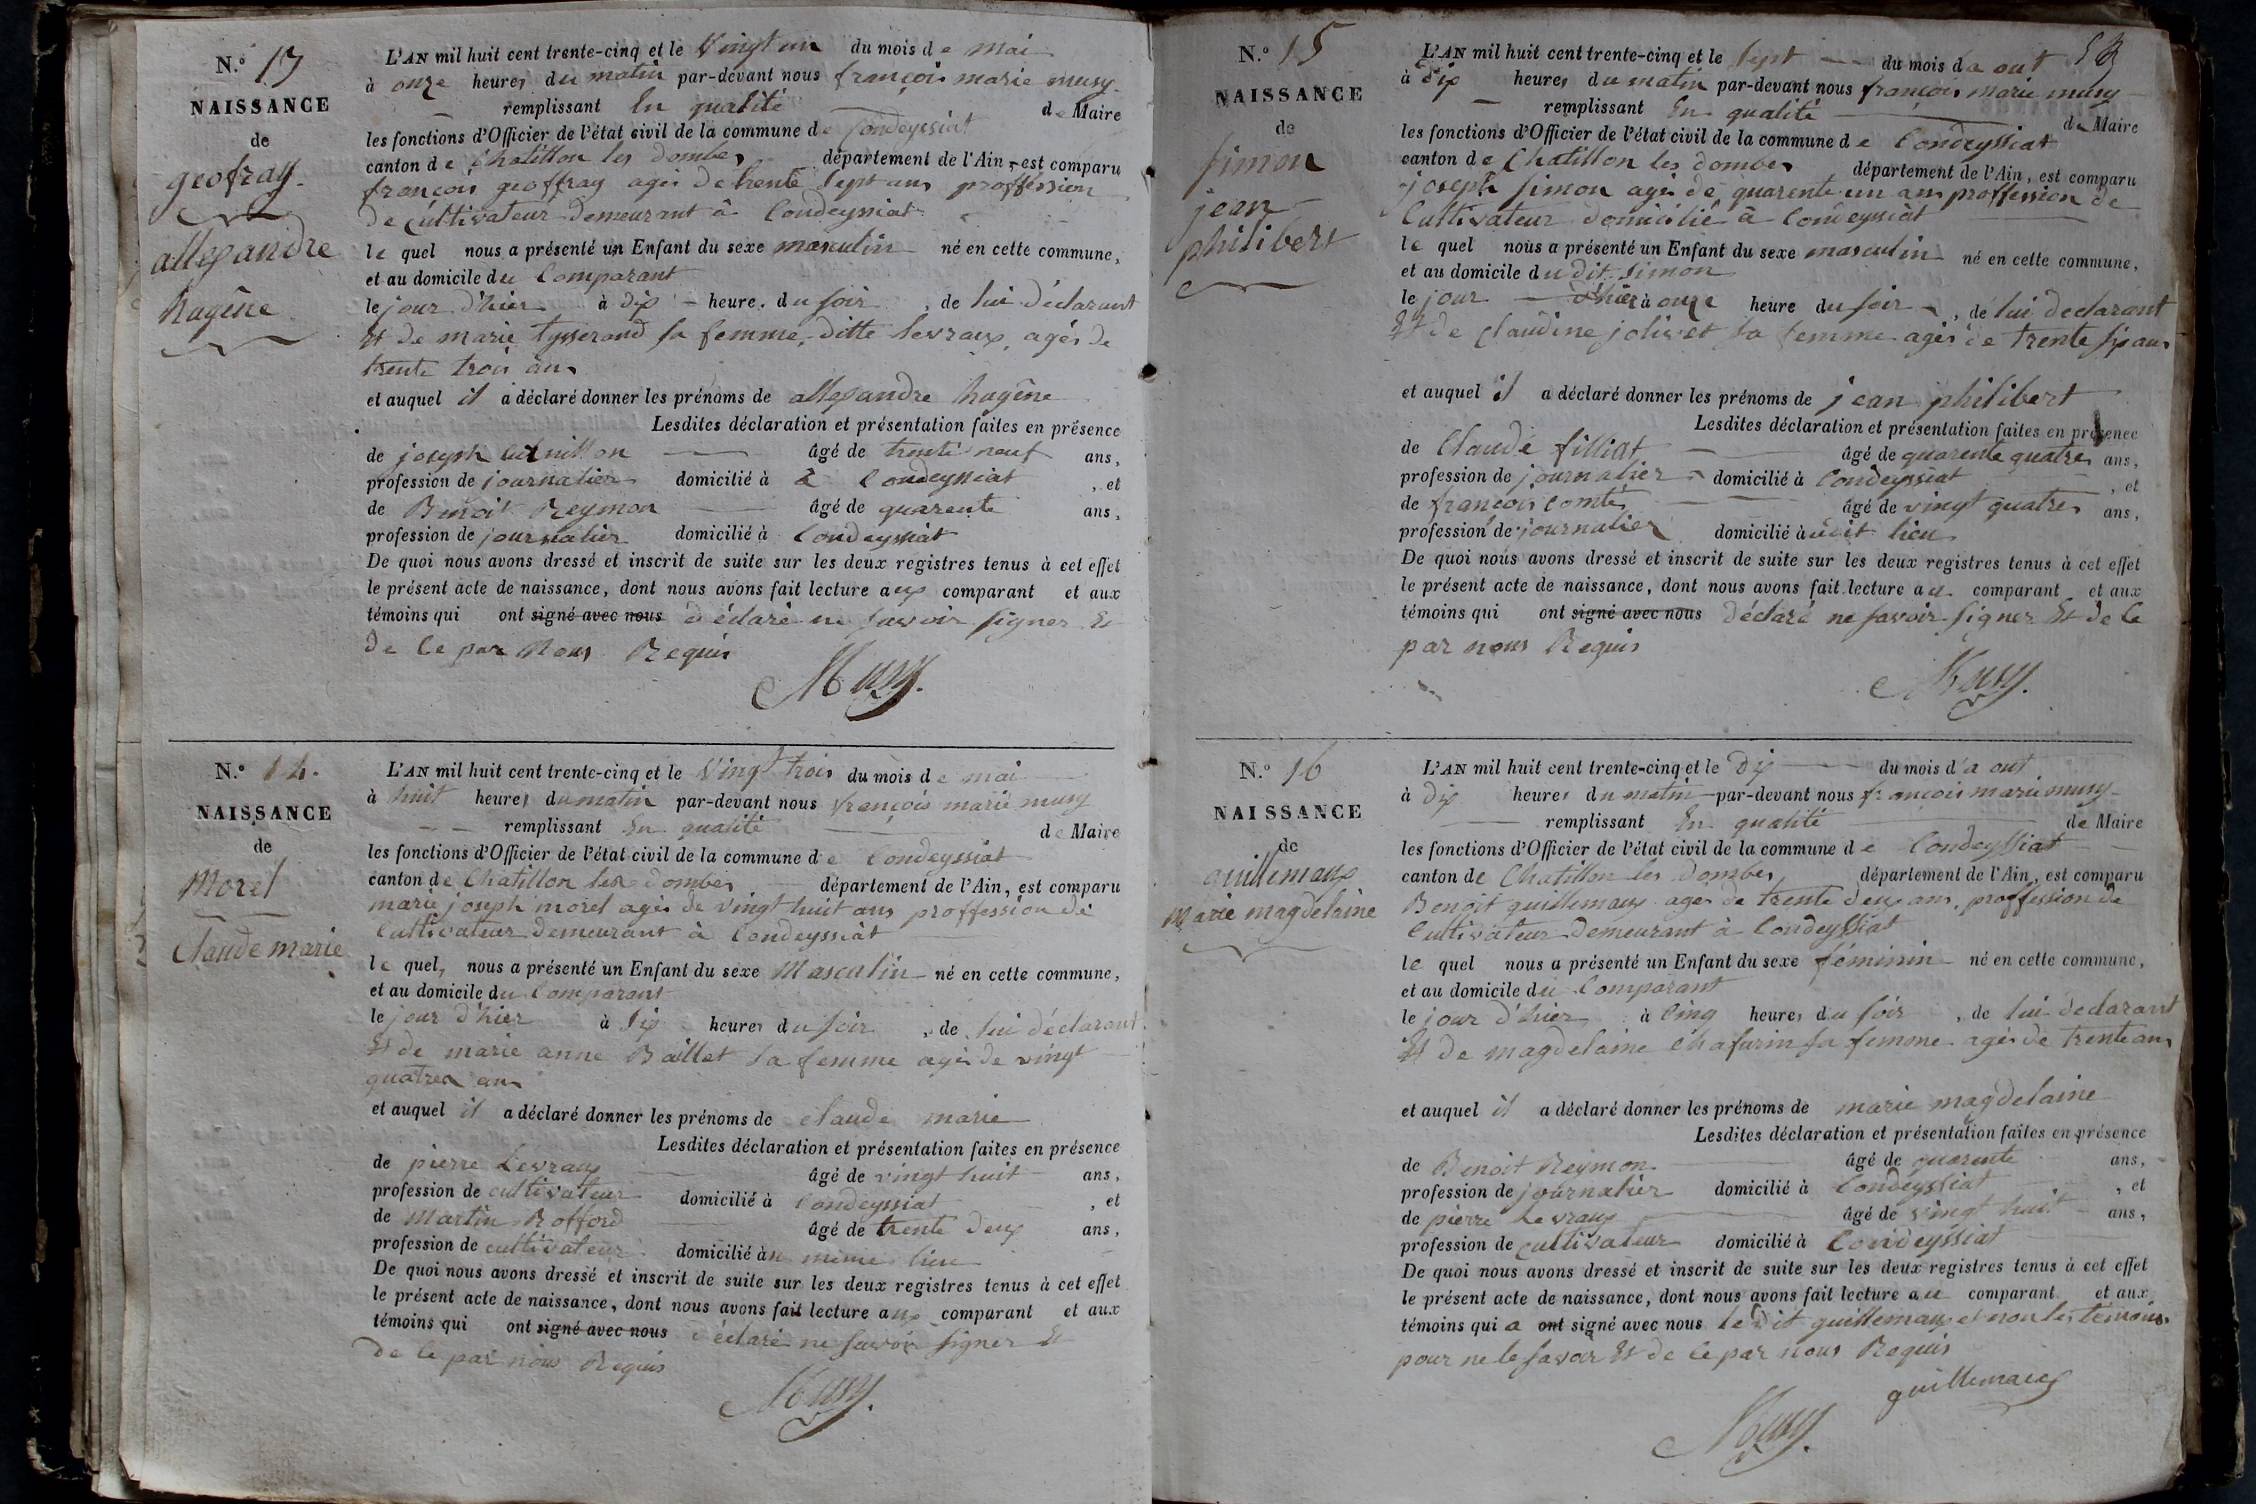 N.° 13
NAISSANCE
de
geofray
allexandre
hugêne
L'AN mil huit cent trente-cinq et le vingt un du mois de mai
à onze heures du matin par-devant nous françois marie musy
remplissant En qualité de Maire
les fonctions d'Officier de l'état civil de la commune de Condeyssiat
canton de Chatillon les dombes département de l'Ain, est comparu
françois geoffray agés de trente sept ans proffession
de cultivateur demeurant à Condeyssiat
le quel nous a présenté un Enfant du sexe masculin né en cette commune,
et au domicile du Comparant
le jour d'hier à dix heure. du soir, de lui déclarant
Et de marie tysserand sa femme, ditte levraux, agés de
trente trois ans
et auquel il a déclaré donner les prénoms de allexandre hugêne
Lesdites déclaration et présentation faites en présence
de joseph âgé de trente neuf ans,
profession de journalier domicilié à à Condeyssiat, et
de Benoit Reymon âgé de quarente ans,
profession de journalier domicilié à Condeyssiat
De quoi nous avons dressé et inscrit de suite sur les deux registres tenus à cet effet
le présent acte de naissance, dont nous avons fait lecture aux comparant et aux
témoins qui ont signé avec nous déclaré ne savoir signer Et
de Ce par Nous Requis
Musy.
N.° 14.
NAISSANCE
de
Morel
Claude marie
L'AN mil huit cent trente-cinq et le Vingt trois du mois de mai
à huit heures du matin par-devant nous françois marie musy
remplissant En qualité de Maire
les fonctions d'Officier de l'état civil de la commune de Condeyssiat
canton de Chatillon les dombes département de l'Ain, est comparu
marie joseph morel agés de vingt huit ans proffession de
Cultivateur demeurant à Condeyssiat
le quel, nous a présenté un Enfant du sexe Masculin né en cette commune,
et au domicile du Comparant
le jour d'hier à six heures du soir, de lui déclarant
Et de marie anne Baillet sa femme agés de vingt
quatres ans
et auquel il a déclaré donner les prénoms de claude marie
Lesdites déclaration et présentation faites en présence
de pierre Levraux âgé de vingt huit ans,
profession de cultivateur domicilié à Condeyssiat, et
de Martin Rofford âgé de trente deux ans,
profession de cultivateur domicilié àu même lieu
De quoi nous avons dressé et inscrit de suite sur les deux registres tenus à cet effet
le présent acte de naissance, dont nous avons fait lecture aux comparant et aux
témoins qui ont signé avec nous déclaré ne savoir signer Et
de Ce par nous Requis
Musy.
N.° 15
NAISSANCE
de
Simon
jean
philibert
L'AN mil huit cent trente-cinq et le sept du mois d'a out
à dix heures du matin par-devant nous françois marie musy
remplissant En qualité de Maire
les fonctions d'Officier de l'état civil de la commune de Condeyssiat
canton de Chatillon les dombes département de l'Ain, est comparu
joseph Simon agés de quarente un ans proffession de
Cultivateur domicilié à Condeyssiat
le quel nous a présenté un Enfant du sexe masculin né en cette commune,
et au domicile du dit Simon
le jour d'hier à onze heure du soir, de lui déclarant
Et de Claudine jolivet sa femme agés de trente six ans
et auquel il a déclaré donner les prénoms de jean philibert
Lesdites déclaration et présentation faites en présence
de Claude filliat âgé de quarente quatres ans,
profession de journalier domicilié à Condeyssiat, et
de françois comte âgé de vingt quatres ans,
profession de journalier domicilié à udit lieu
De quoi nous avons dressé et inscrit de suite sur les deux registres tenus à cet effet
le présent acte de naissance, dont nous avons fait lecture au comparant et aux
témoins qui ont signé avec nous déclaré ne savoir signer Et de Ce
par nous Requis
Musy.
N.° 16
NAISSANCE
de
guillemaux
Marie magdelaine
L'AN mil huit cent trente-cinq et le Dix du mois d'a out
à dix heures du matin par-devant nous françois marie musy
remplissant En qualité de Maire
les fonctions d'Officier de l'état civil de la commune de Condeyssiat
canton de Chatillon les Dombes département de l'Ain, est comparu
Benoit guillemaux agés de trente deux ans, proffession de
Cultivateur Demeurant à Condeyssiat
le quel nous a présenté un Enfant du sexe féminin né en cette commune,
et au domicile du Comparant
le jour d'hier à Cinq heures du soir, de lui déclarant
Et de magdelaine chafurin sa femme agés de trente ans
et auquel il a déclaré donner les prénoms de marie magdelaine
Lesdites déclaration et présentation faites en présence
de Benoit Reymon âgé de quarente ans,
profession de journalier domicilié à Condeyssiat, et
de pierre Levraux âgé de vingt huit ans,
profession de cultivateur domicilié à Condeyssiat
De quoi nous avons dressé et inscrit de suite sur les deux registres tenus à cet effet
le présent acte de naissance, dont nous avons fait lecture au comparant et aux
témoins qui a ont signé avec nous le dit guillemaux et non les témoins
pour ne le savoir Et de Ce par nous Requis
guillemaux
Musy.